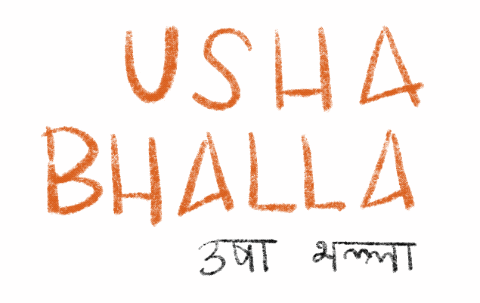 USHA
BHALLA
उषा भल्ला